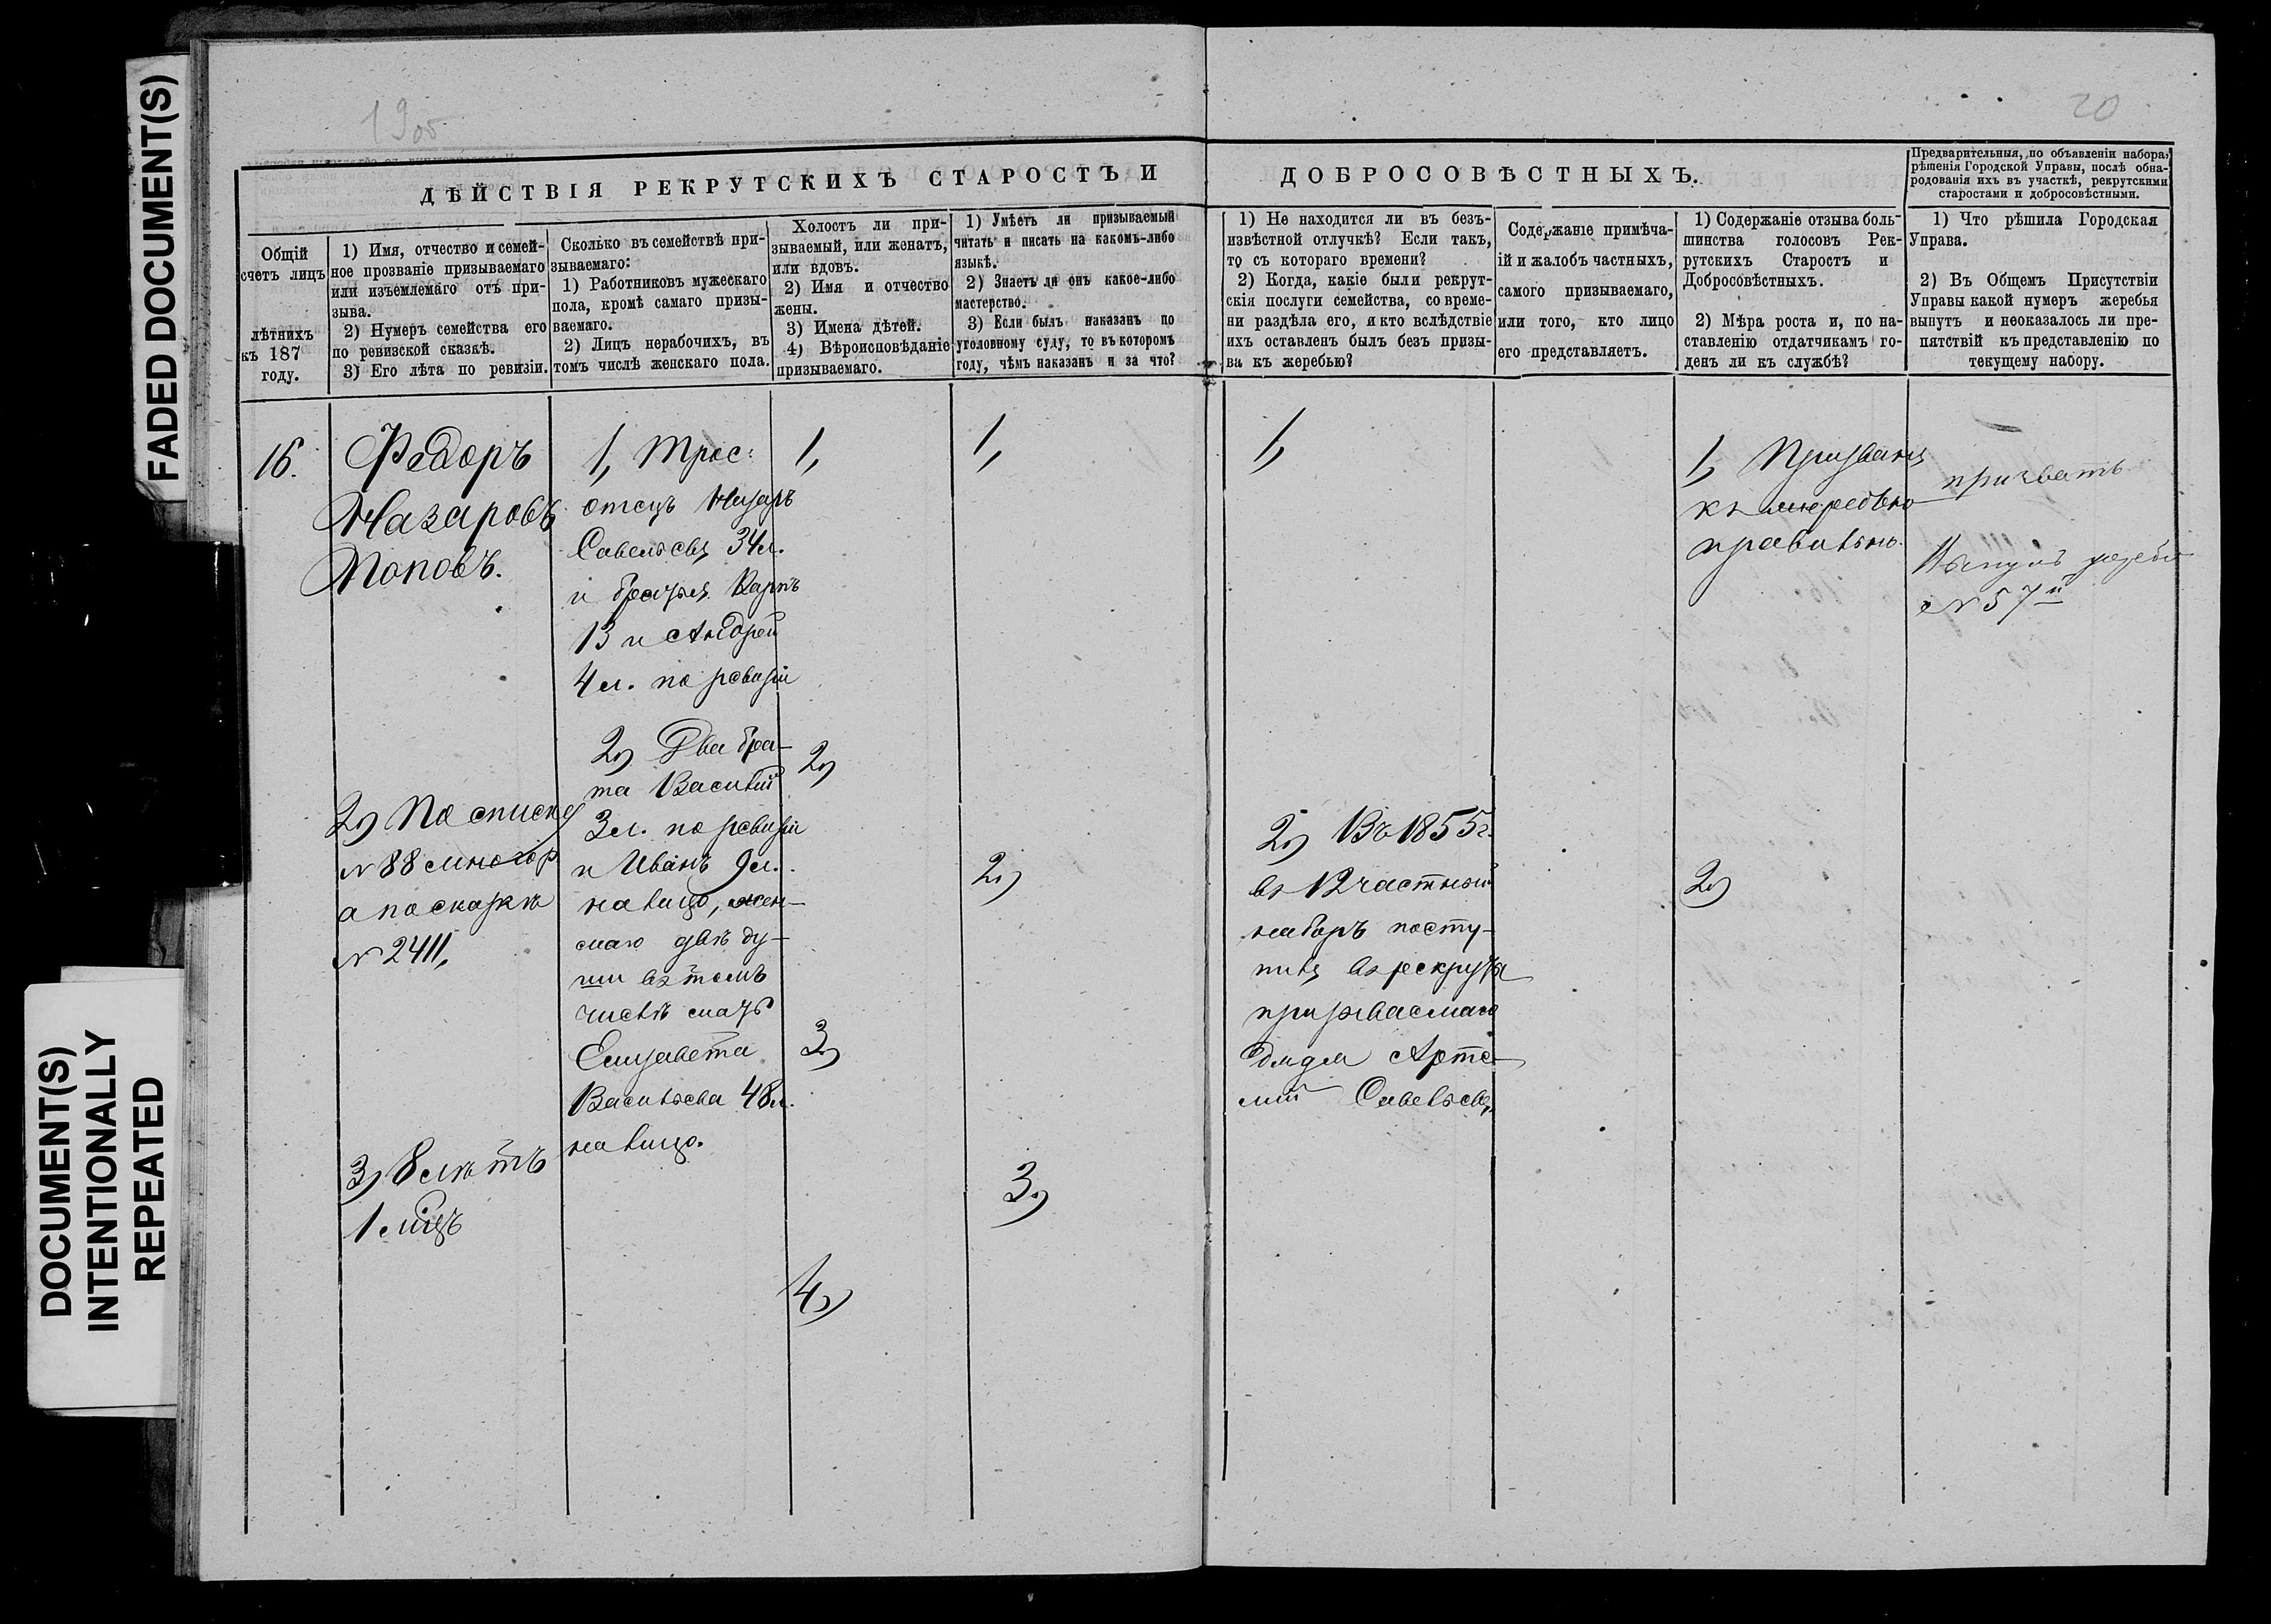 FADED DOCUMENT(S)
DOCUMENT(S)
INTENTIONALLY
REPEATED
19об
20
ДѢЙСТВІЯ РЕКРУТСКИХЪ СТАРОСТЪ И
ДОБРОСОВѢСТНЫХЪ.
Предварительныя, по объявленіи набора,
рѣшенія Городской Управы, послѣ обна-
родованія ихъ въ участкѣ, рекрутскими
старостами и добросовѣстными.
Общій
счетъ лицъ
лѣтнихъ
къ 187
году.
1) Имя, отчество и семей-
ное прозваніе призываемаго
или изъемлемаго отъ при-
зыва.
2) Нумеръ семейства его
по ревизской сказкѣ.
3) Его лѣта по ревизіи.
Сколько въ семействѣ при-
зываемаго:
1) Работниковъ мужескаго
пола, кромѣ самаго призы-
ваемаго.
2) Лицъ нерабочихъ, въ
томъ числѣ женскаго пола.
Холостъ ли при-
зываемый, или женатъ,
или вдовъ.
2) Имя и отчество
жены.
3) Имена дѣтей.
4) Вѣроисповѣданіе
призываемаго.
1) Умѣетъ ли призываемый
читать и писать на какомъ-либо
языкѣ.
2) Знаетъ ли онъ какое-либо
мастерство.
3) Если былъ наказанъ по
уголовному суду, то въ которомъ
году, чѣмъ наказанъ и за что?
1) Не находится ли въ безъ-
извѣстной отлучкѣ? Если такъ,
то съ котораго времени?
2) Когда, какіе были рекрут-
скія послуги семейства, со време-
ни раздѣла его, и кто вслѣдствіе
ихъ оставленъ былъ безъ призы-
ва къ жеребью?
Содержаніе примѣча-
ій и жалобъ частныхъ,
самого призываемаго,
или того, кто лицо
его представляетъ.
1) Содержаніе отзыва боль-
шинства голосовъ Рек-
рутскихъ Старостъ и
Добросовѣстныхъ.
2) Мѣра роста и, по на-
ставленію отдатчикамъ го-
денъ ли къ службѣ?
1) Что рѣшила Городская
Управа.
2) Въ Общемъ Присутствіи
Управы какой нумеръ жеребья
вынутъ и неоказалось ли пре-
пятствій къ представленію по
текущему набору.
16.
Федоръ
Назаровъ
Поповъ.
2) По списку
№ 88 многор
а по сказкѣ
№ 2411,
3) 8 лѣтъ
1 мѣцъ
1, Трое:
отецъ Назаръ
Савельевъ 34 л.
и братья Карпъ
13 и Андрей
4 л. по ревизіи
2) Два бра-
та Василій
3 л. по ревизіи
и Иванъ 9 л.
на лицо, жен-
скаго двѣ ду-
ши въ томъ
числѣ мать
Елизавета
Васильева 48 л.
на лицо.
1,
2)
3)
4)
1,
2)
3)
1,
2) Въ 1855 г.
въ 12 частный
наборъ посту-
пилъ въ рекруты
призываемаго
дядя Арте-
мій Савельевъ,
1, Призванъ
къ жеребью
правильно.
2)
призвать
Вынулъ жребій
№ 57й